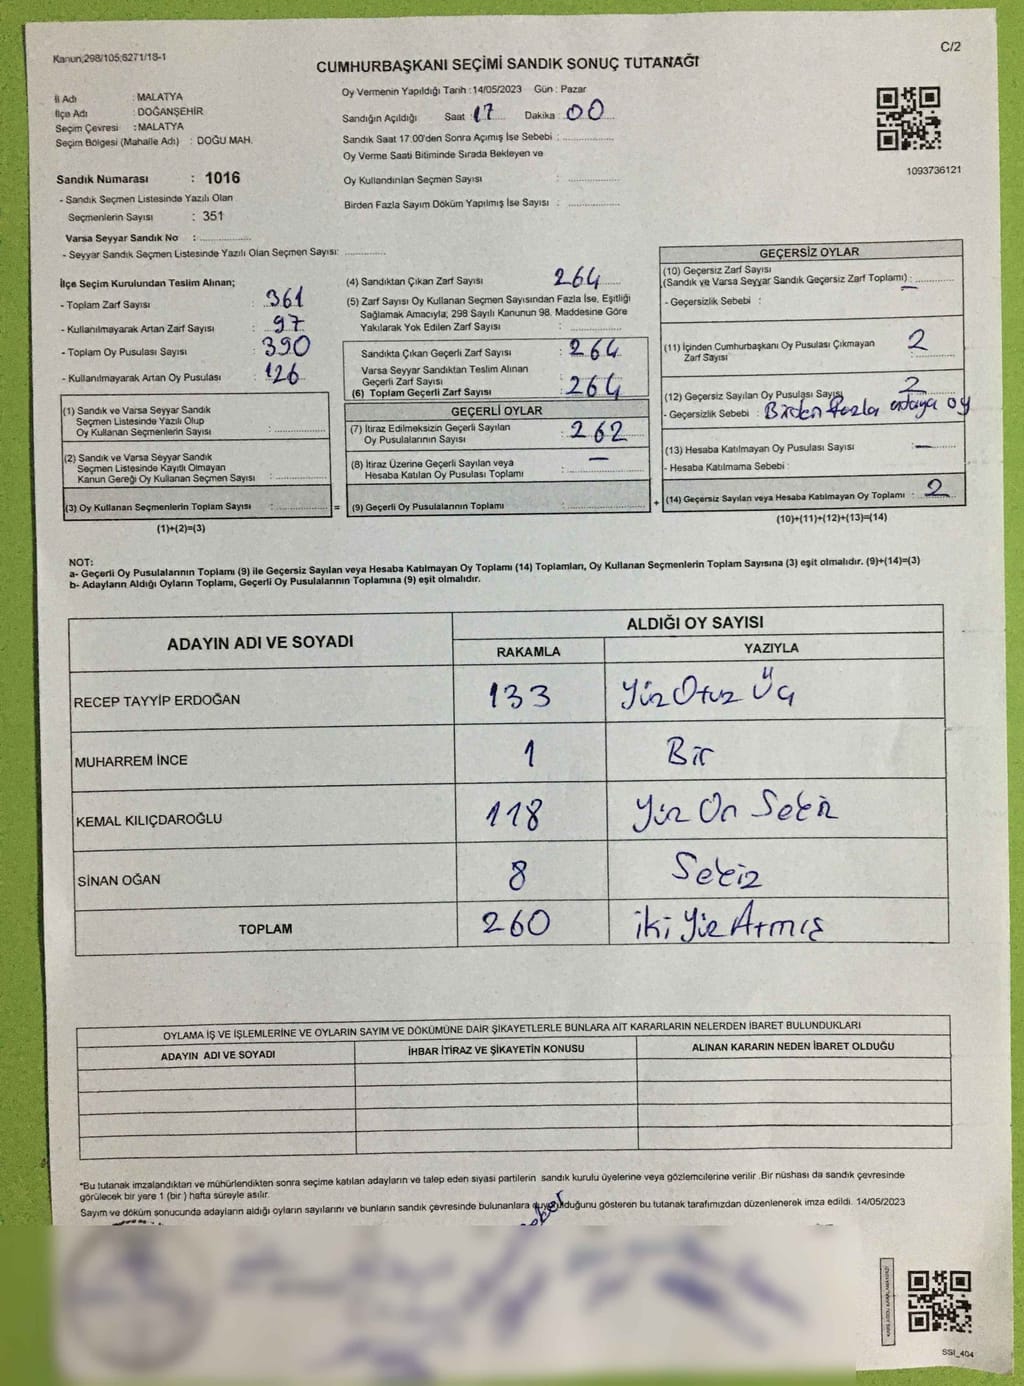 Kanun;298/105;6271/18-1
C/2
CUMHURBAŞKANI SEÇİMİ SANDIK SONUÇ TUTANAĞI
İl Adı : MALATYA
İlçe Adı : DOĞANŞEHİR
Seçim Çevresi : MALATYA
Seçim Bölgesi (Mahalle Adı) : DOĞU MAH.
Oy Vermenin Yapıldığı Tarih : 14/05/2023 Gün : Pazar
Sandığın Açıldığı Saat : 17 Dakika : 00
Sandık Saat 17.00'den Sonra Açımış İse Sebebi : ..............
Oy Verme Saati Bitiminde Sırada Bekleyen ve
Oy Kullandırılan Seçmen Sayısı : ..............
Birden Fazla Sayım Döküm Yapılmış İse Sayısı : ..............
1093736121
Sandık Numarası : 1016
- Sandık Seçmen Listesinde Yazılı Olan
Seçmenlerin Sayısı : 351
Varsa Seyyar Sandık No : ..............
- Seyyar Sandık Seçmen Listesinde Yazılı Olan Seçmen Sayısı: ..............
İlçe Seçim Kurulundan Teslim Alınan;
- Toplam Zarf Sayısı : 361
- Kullanılmayarak Artan Zarf Sayısı : 97
- Toplam Oy Pusulası Sayısı : 390
- Kullanılmayarak Artan Oy Pusulası : 126
(1) Sandık ve Varsa Seyyar Sandık
Seçmen Listesinde Yazılı Olup
Oy Kullanan Seçmenlerin Sayısı : ..............
(2) Sandık ve Varsa Seyyar Sandık
Seçmen Listesinde Kayıtlı Olmayan
Kanun Gereği Oy Kullanan Seçmen Sayısı : ..............
(3) Oy Kullanan Seçmenlerin Toplam Sayısı : .............. =
(1)+(2)=(3)
(4) Sandıktan Çıkan Zarf Sayısı 264
(5) Zarf Sayısı Oy Kullanan Seçmen Sayısından Fazla İse, Eşitliği
Sağlamak Amacıyla; 298 Sayılı Kanunun 98. Maddesine Göre
Yakılarak Yok Edilen Zarf Sayısı : ..............
Sandıkta Çıkan Geçerli Zarf Sayısı : 264
Varsa Seyyar Sandıktan Teslim Alınan
Geçerli Zarf Sayısı
(6) Toplam Geçerli Zarf Sayısı : 264
GEÇERLİ OYLAR
(7) İtiraz Edilmeksizin Geçerli Sayılan
Oy Pusulalarının Sayısı : 262
(8) İtiraz Üzerine Geçerli Sayılan veya
Hesaba Katılan Oy Pusulası Toplamı : —
(9) Geçerli Oy Pusulalarının Toplamı : .............. +
GEÇERSİZ OYLAR
(10) Geçersiz Zarf Sayısı
(Sandık ve Varsa Seyyar Sandık Geçersiz Zarf Toplamı) : —
- Geçersizlik Sebebi :
(11) İçinden Cumhurbaşkanı Oy Pusulası Çıkmayan
Zarf Sayısı : 2
(12) Geçersiz Sayılan Oy Pusulası Sayısı 2
- Geçersizlik Sebebi : Birden fazla adaya oy
(13) Hesaba Katılmayan Oy Pusulası Sayısı : —
- Hesaba Katılmama Sebebi :
(14) Geçersiz Sayılan veya Hesaba Katılmayan Oy Toplamı : 2
(10)+(11)+(12)+(13)=(14)
NOT:
a- Geçerli Oy Pusulalarının Toplamı (9) ile Geçersiz Sayılan veya Hesaba Katılmayan Oy Toplamı (14) Toplamları, Oy Kullanan Seçmenlerin Toplam Sayısına (3) eşit olmalıdır. (9)+(14)=(3)
b- Adayların Aldığı Oyların Toplamı, Geçerli Oy Pusulalarının Toplamına (9) eşit olmalıdır.
ADAYIN ADI VE SOYADI
ALDIĞI OY SAYISI
RAKAMLA YAZIYLA
RECEP TAYYİP ERDOĞAN 133 Yüz Otuz Üç
MUHARREM İNCE 1 Bir
KEMAL KILIÇDAROĞLU 118 Yüz On Sekiz
SİNAN OĞAN 8 Sekiz
TOPLAM 260 iki Yüz Atmış
OYLAMA İŞ VE İŞLEMLERİNE VE OYLARIN SAYIM VE DÖKÜMÜNE DAİR ŞİKAYETLERLE BUNLARA AİT KARARLARIN NELERDEN İBARET BULUNDUKLARI
ADAYIN ADI VE SOYADI İHBAR İTİRAZ VE ŞİKAYETİN KONUSU ALINAN KARARIN NEDEN İBARET OLDUĞU
*Bu tutanak imzalandıktan ve mühürlendikten sonra seçime katılan adayların ve talep eden siyasi partilerin sandık kurulu üyelerine veya gözlemcilerine verilir. Bir nüshası da sandık çevresinde
görülecek bir yere 1 (bir ) hafta süreyle asılır.
Sayım ve döküm sonucunda adayların aldığı oyların sayılarını ve bunların sandık çevresinde bulunanlara duyurulduğunu gösteren bu tutanak tarafımızdan düzenlenerek imza edildi. 14/05/2023
SSI_404